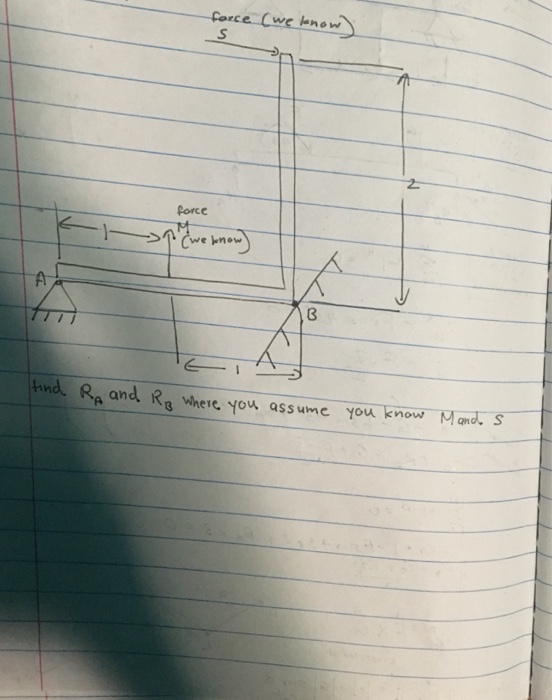 force (we know)
S
2
force
1
M
(we know)
A
B
1
find RA and RB where you assume you know M and S